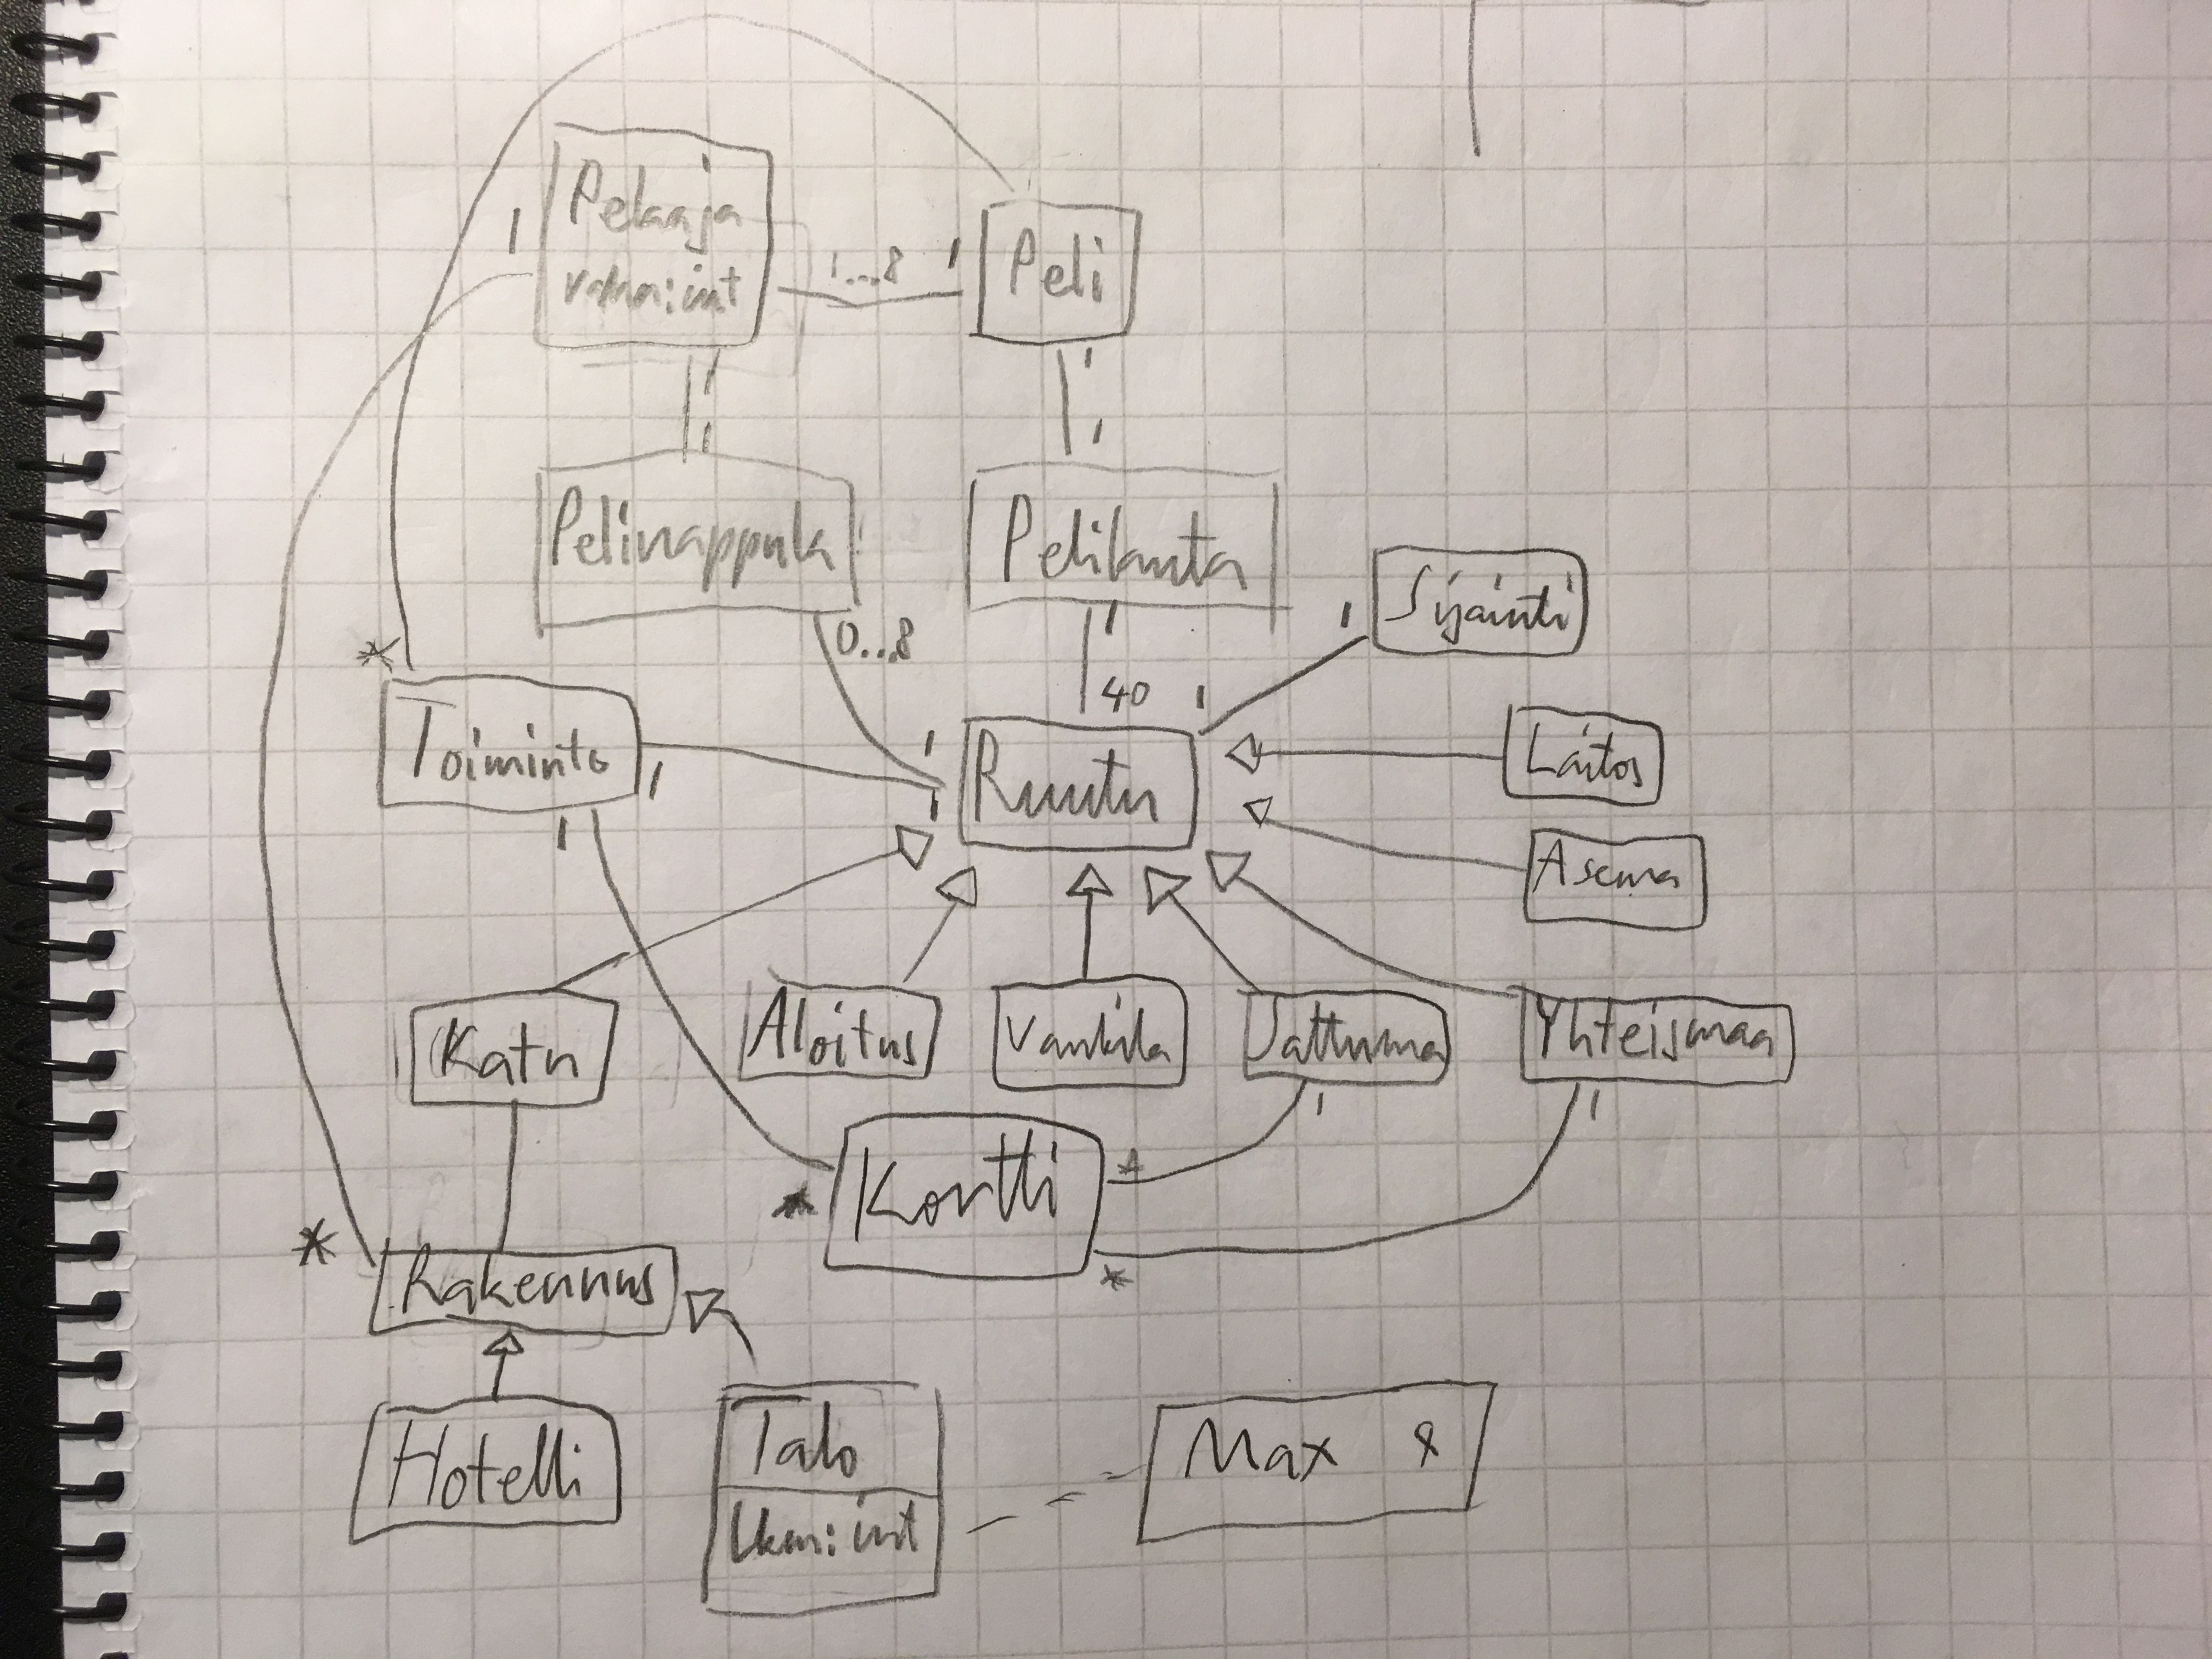 Pelaaja
raha:int
1
1...8
1
Peli
1
1
1
1
Pelinappula
Pelilauta
Sijainti
1
0...8
1
40
1
*
Toiminto
1
1
1
1
Ruutu
Laitos
Asema
Katu
Aloitus
Vankila
Sattuma
Yhteismaa
1
1
Kortti
*
*
*
*
Rakennus
Hotelli
Talo
lkm:int
Max 8